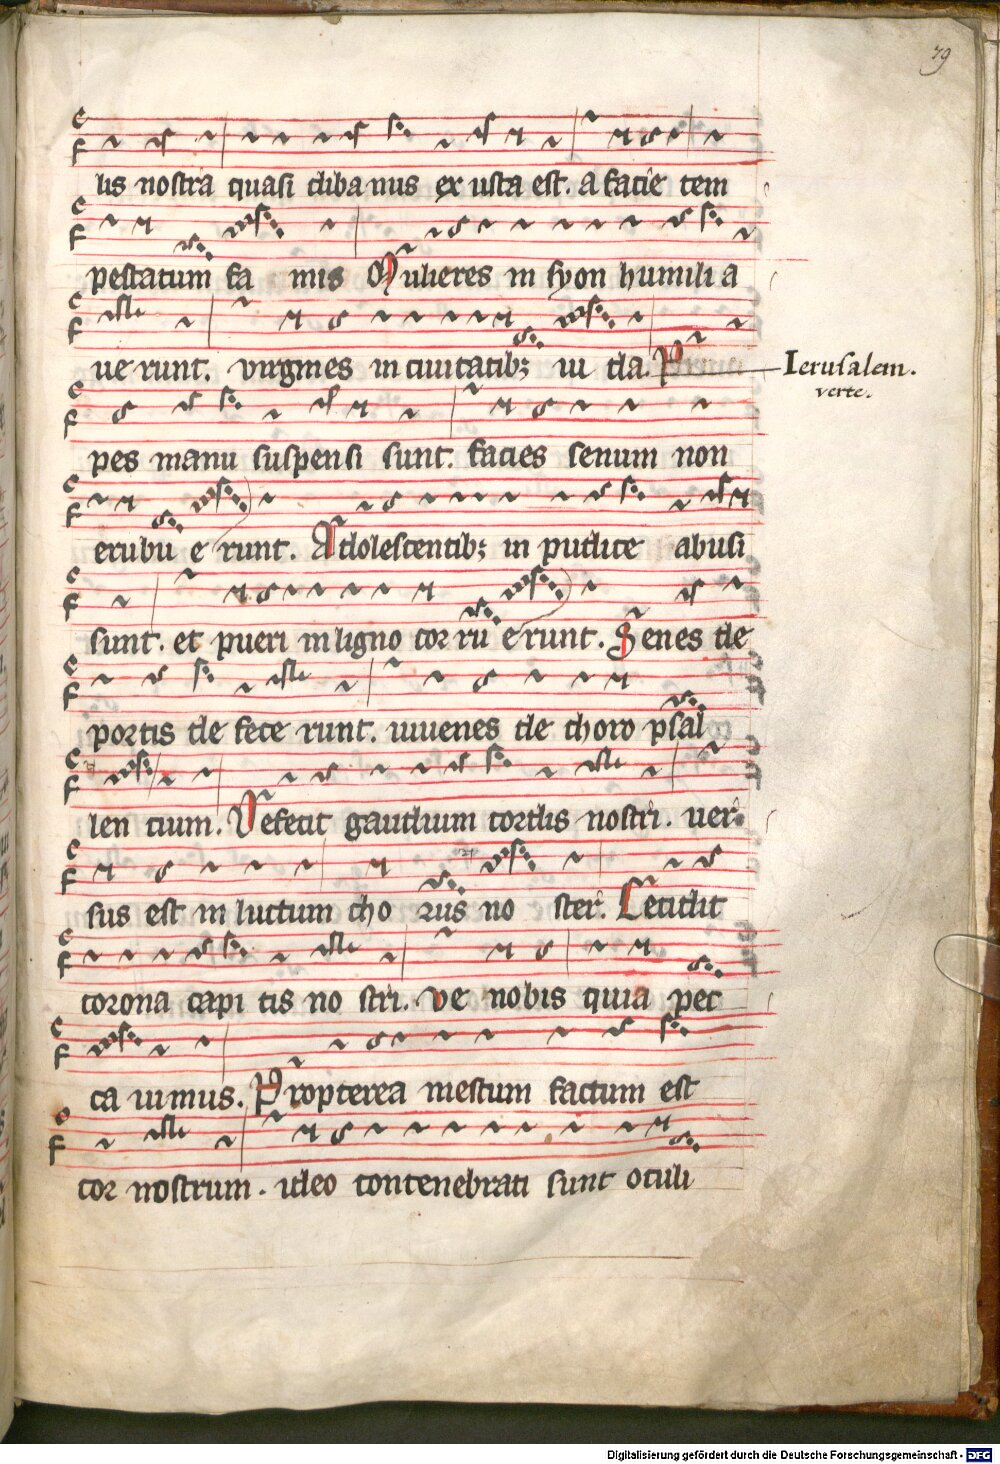 79
lis nostra quasi clibanus exusta est. a facie tem
pestatum fa mis Mulieres in syon humilia
ue runt. virgines in ciuitatib; iu da. P
Ierusalem.
verte.
pes manu suspensi sunt. facies senum non
erubu e runt. Adolescentib; in pudice abusi
sunt. et pueri in ligno cor ru erunt. Senes de
portis de fece runt. iuuenes de choro psal
len cium. Defecit gaudium cordis nostri. uer
sus est in luctum cho rus no ster. Cecidit
corona capi tis no stri. ve nobis quia pec
ca uimus. Propterea mestum factum est
cor nostrum. ideo contenebrati sunt oculi
Digitalisierung gefördert durch die Deutsche Forschungsgemeinschaft - DFG